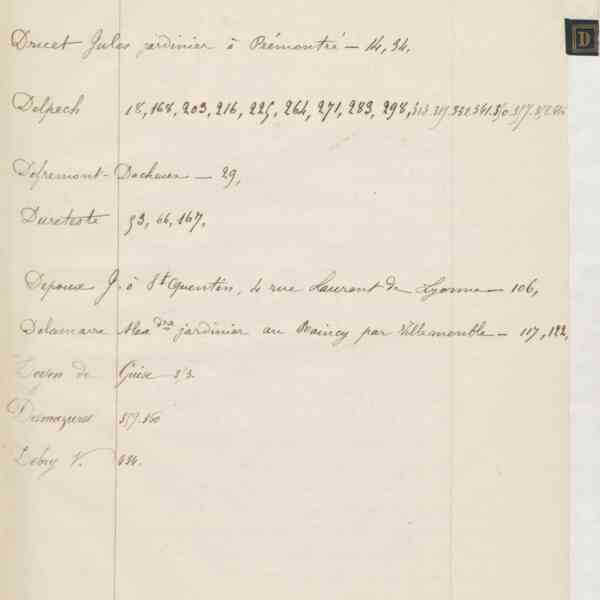 D
Drucet Jules jardinier à Prémontré — 14, 34,
Delpech 18, 168, 203, 216, 225, 264, 271, 283, 298, 313. 317. 332. 341.
Defremont- — 29,
Dureteste 53, 66, 167,
J. à St Quentin, 4 rue Laurent de Lyonne — 106,
Delamarre jardinier au Raincy par Villemomble — 117, 122,
Doyen de Guise
Desmazures 359. 360
V. 434.